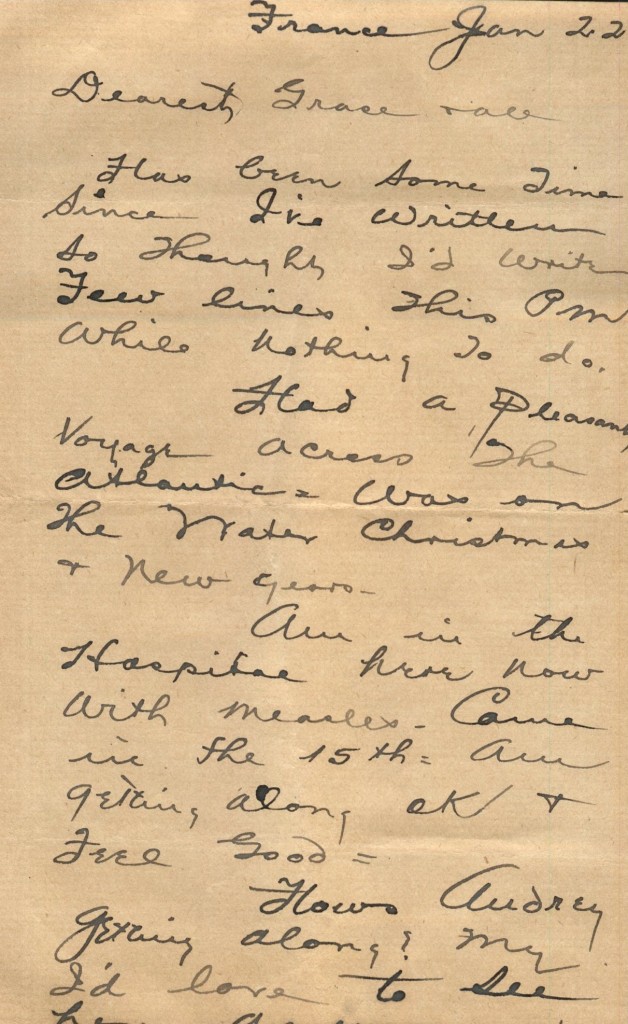 France Jan 22
Dearest Grace & all
Has been some time
since I've written
so thought I'd write
Few lines this PM
while nothing to do.
Had a Pleasant
Voyage across the
Atlantic = Was on
the Water Christmas
& New years -
Am in the
Hospital here now
with measles - Came
in the 15th = Am
getting along OK &
Feel Good =
Hows Audrey
getting along? My
I'd love to see
her